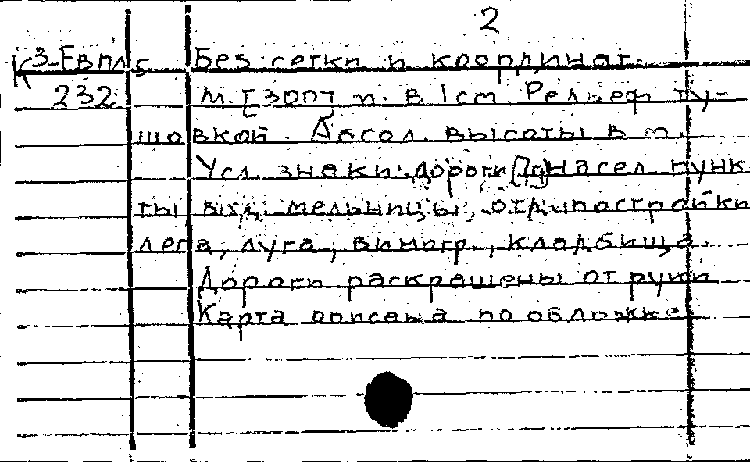 2
К3-Евпл5 Без сетки и координат.
232 М. [300] п. в 1 см. Рельеф ту-
шовкой. Абсол. высоты в т.
Усл. знаки: дороги [7д] насел. пунк
ты, вод. мельницы, отд. постройки
леса, луга, виногр., кладбища.
Дороги раскрашены от руки
Карта описана по обложке.